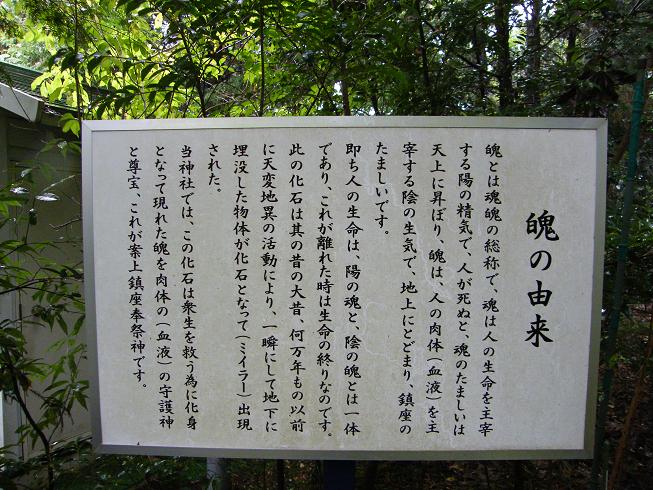 魄の由来
魄とは魂魄の総称で、魂は人の生命を主宰
する陽の精気で、人が死ぬと、魂のたましいは
天上に昇ぼり、魄は、人の肉体（血液）を主
宰する陰の生気で、地上にとどまり、鎮座の
たましいです。
即ち人の生命は、陽の魂と、陰の魄とは一体
であり、これが離れた時は生命の終りなのです。
此の化石は其の昔の大昔、何万年もの以前
に天変地異の活動により、一瞬にして地下に
埋没した物体が化石となって（ミイラー）出現
された。
当神社では、この化石は衆生を救う為に化身
となって現れた魄を肉体の（血液）の守護神
と尊宝、これが案上鎮座奉祭神です。